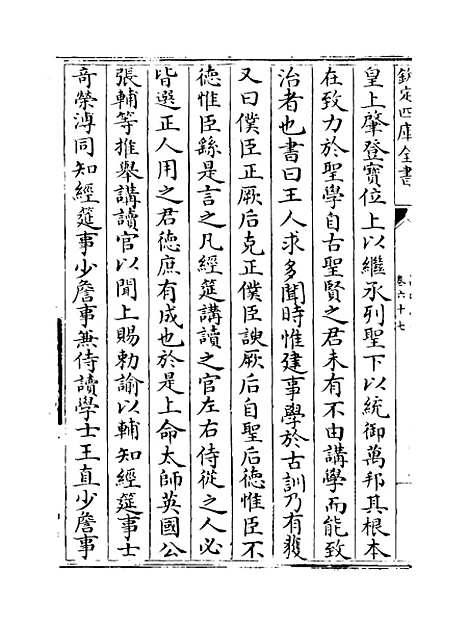 欽定四庫全書
卷六十七
皇上肇登寶位上以繼承列聖下以統御萬邦其根本
在致力於聖學自古聖賢之君未有不由講學而能致
治者也書曰王人求多聞時惟建事學於古訓乃有獲
又曰僕臣正厥后克正僕臣諛厥后自聖后德惟臣不
德惟臣繇是言之凡經筵講讀之官左右侍從之人必
皆選正人用之君德庶有成也於是上命太師英國公
張輔等推舉講讀官以聞上賜勅諭以輔知經筵事士
竒榮溥同知經筵事少詹事兼侍讀學士王直少詹事